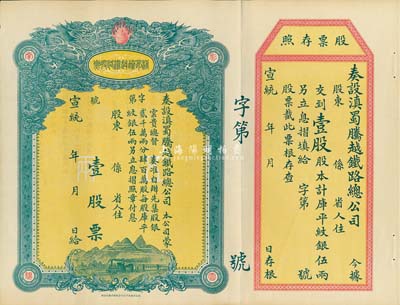 照存票股
奏設滇蜀騰越鐵路總公司
今據
股東
係
省人住
交到壹股股本計庫平紋銀伍兩
另立息摺填給
字第
號
股票截此票根存查
宣統
年
月
日存根
字第
號
奏設滇蜀騰越鐵路總公司
本公司蒙
雲貴總督
奏准自辦先集股銀
貳千萬兩分肆百萬股每股庫平
紋銀伍兩另立息摺照章付息
股東
係
省人住
壹股票
字
第
號
宣統
年
月
日給